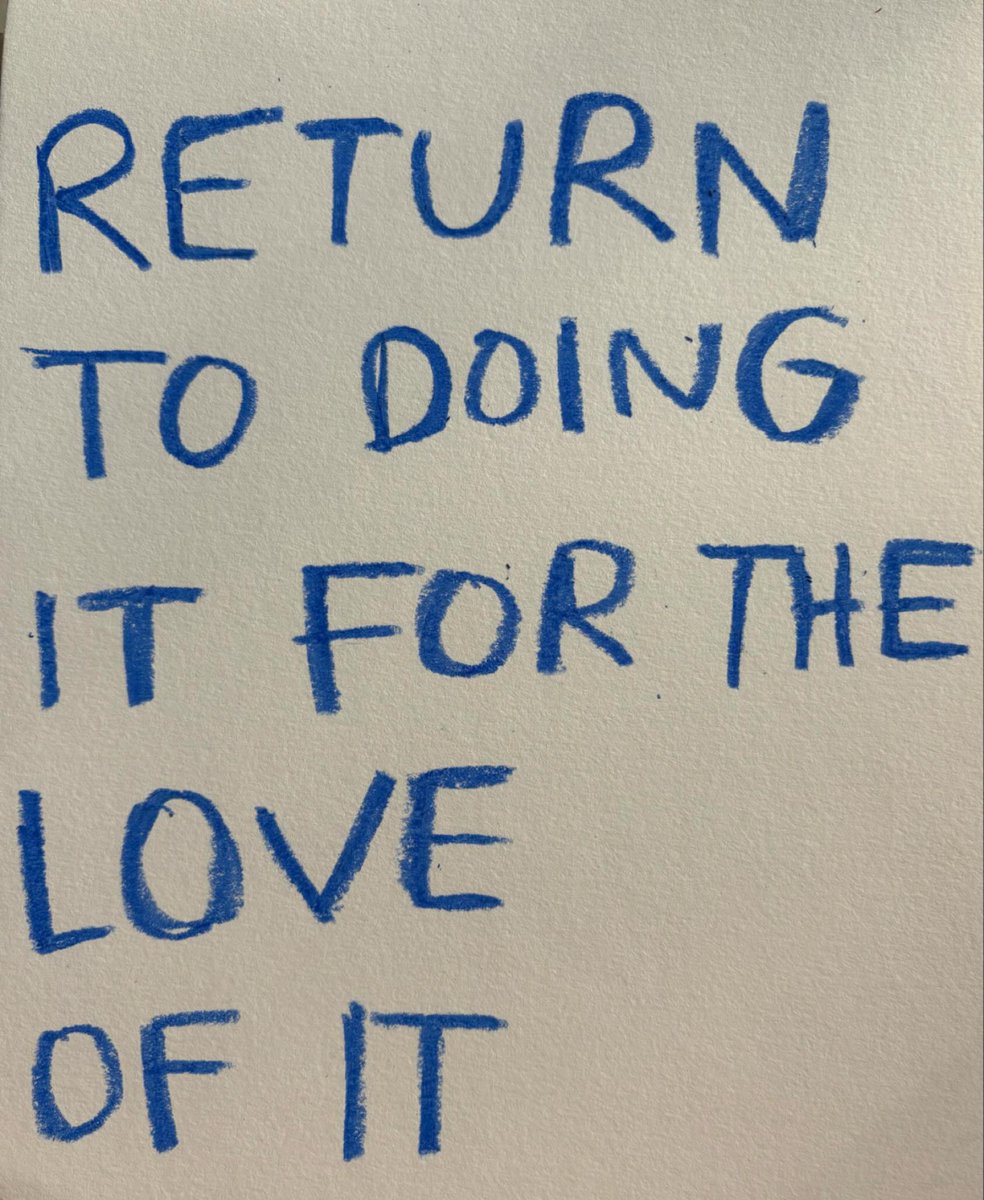 RETURN
TO DOING
IT FOR THE
LOVE
OF IT